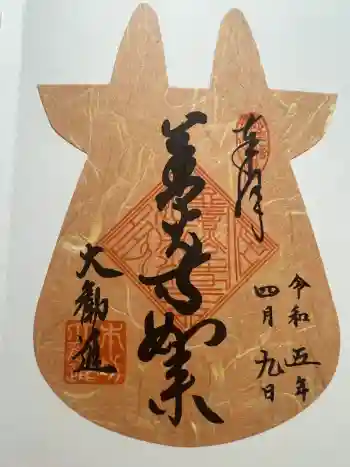 奉拝
令和五年
四月九日
善光寺如来
大勧進